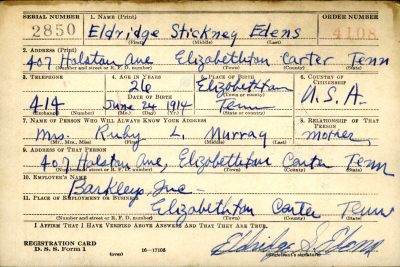 SERIAL NUMBER 1. NAME (Print) ORDER NUMBER
2850 Eldridge Stickney Edens 4108
(First) (Middle) (Last)
2. ADDRESS (Print)
407 Holston Ave Elizabethton Carter Tenn
(Number and street or R. F. D. number) (Town) (County) (State)
3. TELEPHONE 4. AGE IN YEARS 5. PLACE OF BIRTH 6. COUNTRY OF CITIZENSHIP
26 Elizabethton
(Town or county)
DATE OF BIRTH
414 June 24 1914 Tenn U.S.A.
(Exchange) (Number) (Mo.) (Day) (Yr.) (State or country)
7. NAME OF PERSON WHO WILL ALWAYS KNOW YOUR ADDRESS 8. RELATIONSHIP OF THAT PERSON
Mrs. Ruby L. Murray mother
(Mr., Mrs., Miss) (First) (Middle) (Last)
9. ADDRESS OF THAT PERSON
407 Holston Ave, Elizabethton Carter Tenn
(Number and street or R. F. D. number) (Town) (County) (State)
10. EMPLOYER'S NAME
Barkley, Inc -
11. PLACE OF EMPLOYMENT OR BUSINESS
Elizabethton Carter Tenn
(Number and street or R. F. D. number) (Town) (County) (State)
I AFFIRM THAT I HAVE VERIFIED ABOVE ANSWERS AND THAT THEY ARE TRUE.
REGISTRATION CARD
D. S. S. Form 1 (over) 16—17105 Eldridge S. Edens
(Registrant's signature)